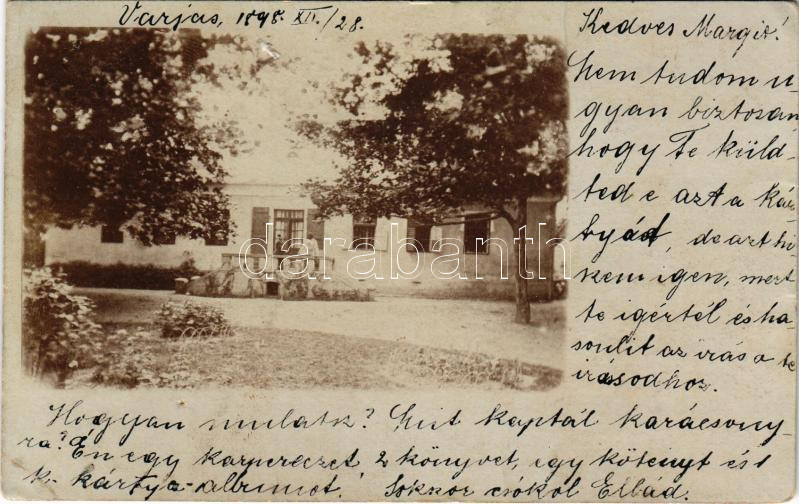 Varjas, 1898. XII./28.
Kedves Margit!
Nem tudom u-
gyan biztosan
hogy Te küld-
ted e azt a kár-
tyát, de azt hi-
szem igen, mert
te igértél és ha-
sonlit az irás a te
irásodhoz.
Hogyan mulatsz? Mit kaptál karácsony-
ra? Én egy karperecet 2 könyvet, egy kötényt és 1
k. kártya-albumot. Sokszor csókol
darabanth